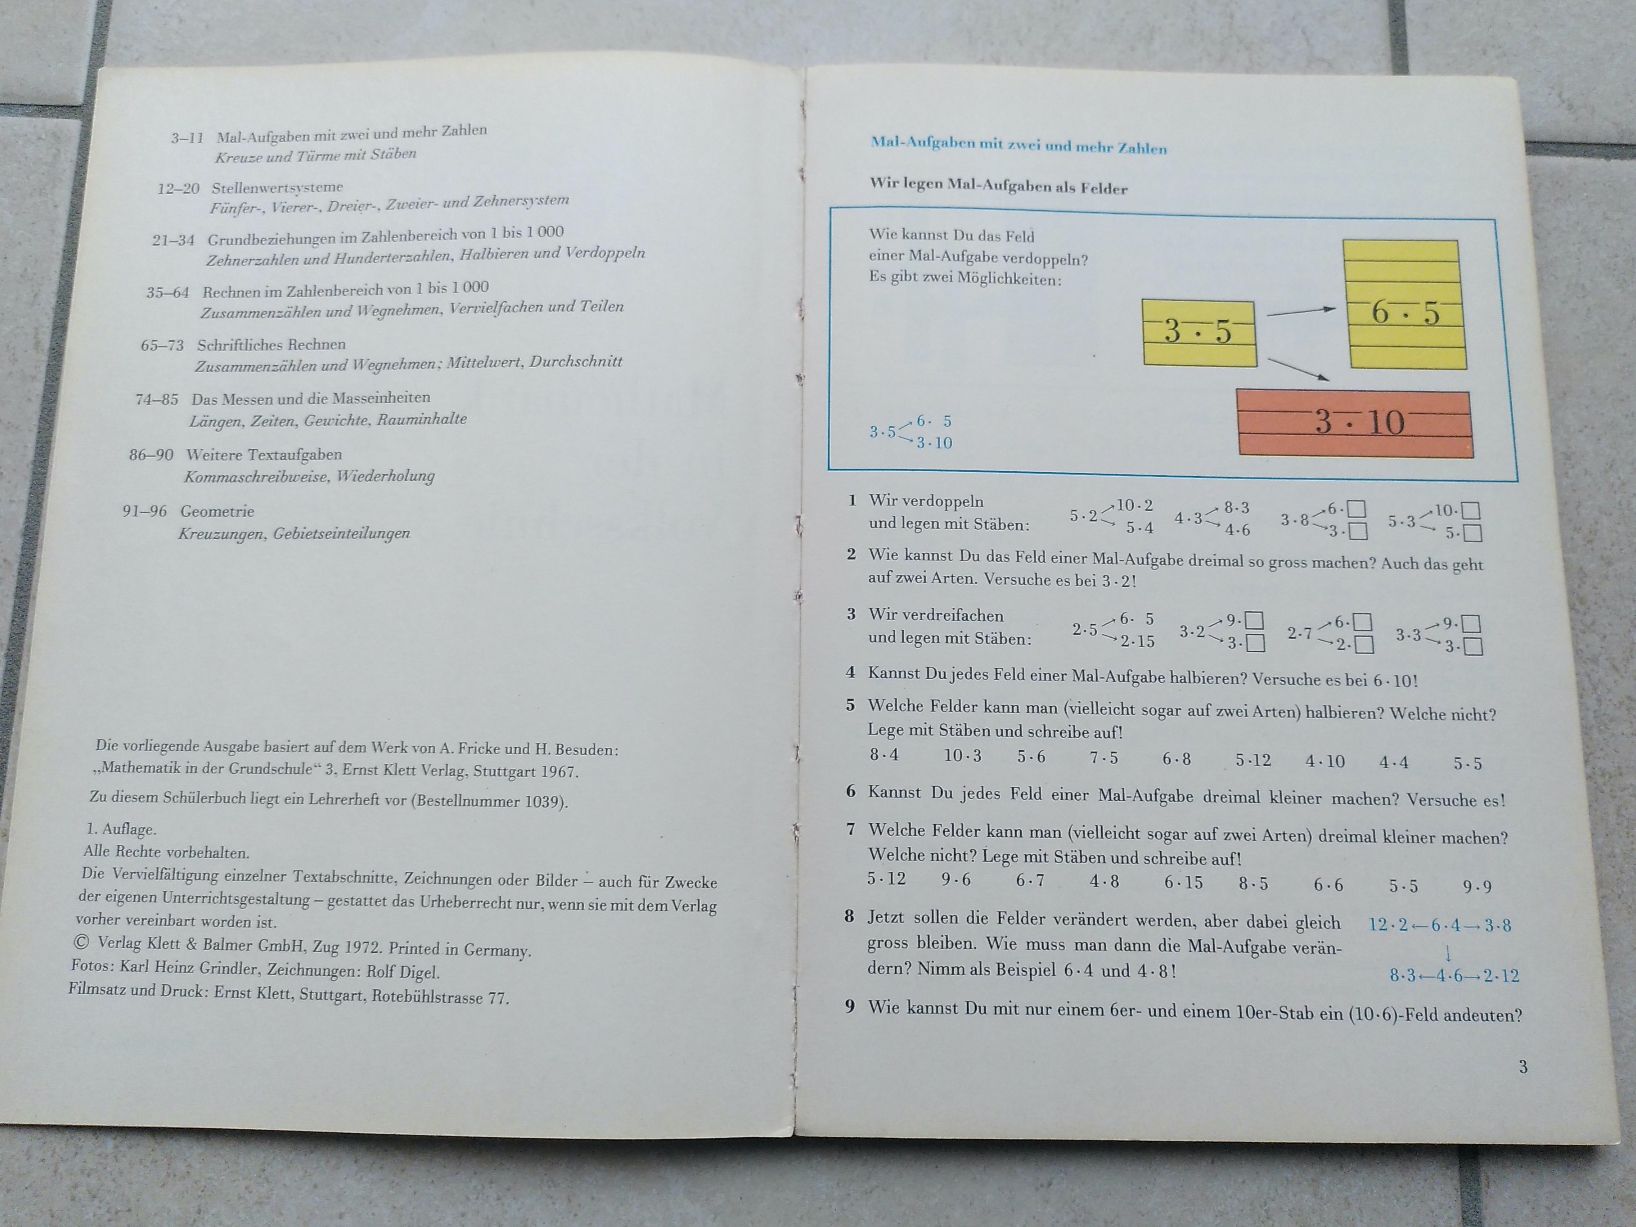 3–11 Mal-Aufgaben mit zwei und mehr Zahlen
Kreuze und Türme mit Stäben
12–20 Stellenwertsysteme
Fünfer-, Vierer-, Dreier-, Zweier- und Zehnersystem
21–34 Grundbeziehungen im Zahlenbereich von 1 bis 1 000
Zehnerzahlen und Hunderterzahlen, Halbieren und Verdoppeln
35–64 Rechnen im Zahlenbereich von 1 bis 1 000
Zusammenzählen und Wegnehmen, Vervielfachen und Teilen
65–73 Schriftliches Rechnen
Zusammenzählen und Wegnehmen; Mittelwert, Durchschnitt
74–85 Das Messen und die Masseinheiten
Längen, Zeiten, Gewichte, Rauminhalte
86–90 Weitere Textaufgaben
Kommaschreibweise, Wiederholung
91–96 Geometrie
Kreuzungen, Gebietseinteilungen
Die vorliegende Ausgabe basiert auf dem Werk von A. Fricke und H. Besuden:
„Mathematik in der Grundschule“ 3, Ernst Klett Verlag, Stuttgart 1967.
Zu diesem Schülerbuch liegt ein Lehrerheft vor (Bestellnummer 1039).
1. Auflage.
Alle Rechte vorbehalten.
Die Vervielfältigung einzelner Textabschnitte, Zeichnungen oder Bilder – auch für Zwecke
der eigenen Unterrichtsgestaltung – gestattet das Urheberrecht nur, wenn sie mit dem Verlag
vorher vereinbart worden ist.
© Verlag Klett & Balmer GmbH, Zug 1972. Printed in Germany.
Fotos: Karl Heinz Grindler, Zeichnungen: Rolf Digel.
Filmsatz und Druck: Ernst Klett, Stuttgart, Rotebühlstrasse 77.
Mal-Aufgaben mit zwei und mehr Zahlen
Wir legen Mal-Aufgaben als Felder
Wie kannst Du das Feld
einer Mal-Aufgabe verdoppeln?
Es gibt zwei Möglichkeiten:
3 · 5
6 · 5
3 · 10
3·5 6· 5
3·10
1 Wir verdoppeln
und legen mit Stäben:
5·2 10·2 4·3 8·3 3·8 6·□ 5·3 10·□
5·4 4·6 3·□ 5·□
2 Wie kannst Du das Feld einer Mal-Aufgabe dreimal so gross machen? Auch das geht
auf zwei Arten. Versuche es bei 3·2!
3 Wir verdreifachen
und legen mit Stäben:
2·5 6· 5 3·2 9·□ 2·7 6·□ 3·3 9·□
2·15 3·□ 2·□ 3·□
4 Kannst Du jedes Feld einer Mal-Aufgabe halbieren? Versuche es bei 6·10!
5 Welche Felder kann man (vielleicht sogar auf zwei Arten) halbieren? Welche nicht?
Lege mit Stäben und schreibe auf!
8·4 10·3 5·6 7·5 6·8 5·12 4·10 4·4 5·5
6 Kannst Du jedes Feld einer Mal-Aufgabe dreimal kleiner machen? Versuche es!
7 Welche Felder kann man (vielleicht sogar auf zwei Arten) dreimal kleiner machen?
Welche nicht? Lege mit Stäben und schreibe auf!
5·12 9·6 6·7 4·8 6·15 8·5 6·6 5·5 9·9
8 Jetzt sollen die Felder verändert werden, aber dabei gleich
gross bleiben. Wie muss man dann die Mal-Aufgabe verän-
dern? Nimm als Beispiel 6·4 und 4·8!
12·2←6·4→3·8
↓
8·3←4·6→2·12
9 Wie kannst Du mit nur einem 6er- und einem 10er-Stab ein (10·6)-Feld andeuten?
3